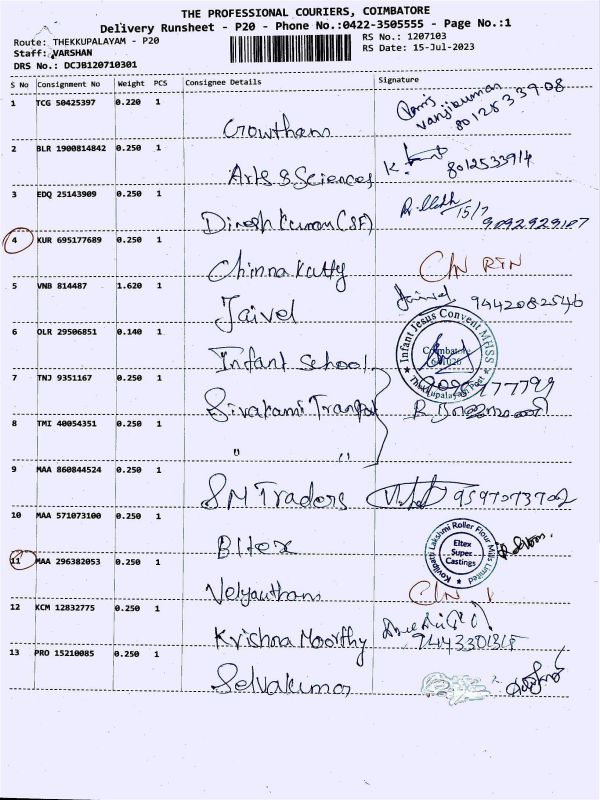 THE PROFESSIONAL COURIERS, COIMBATORE
Delivery Runsheet - P20 - Phone No.:0422-3505555 - Page No.:1
Route: THEKKUPALAYAM - P20
RS No.: 1207103
Staff: VARSHAN
RS Date: 15-Jul-2023
DRS No.: DCJB120710301
S No Consignment No Weight PCS Consignee Details Signature
1 TCG 50425397 0.220 1
Growthams
2 BLR 1900814842 0.250 1
8012533914
Arts & Sciences
3 EDQ 25143909 0.250 1
15/7
Dinesh Kumar (SF)
4 KUR 695177689 0.250 1
Chinna Kutty C/N RTN
5 VNB 814487 1.620 1
Jaivel 9442082546
Jaivel
6 OLR 29506851 0.140 1
Infant Jesus Convent MHSS
Coimbatore
Thekkupalayam Post
Infant School
7 TNJ 9351167 0.250 1
Sivakami
8 TMI 40054351 0.250 1
" "
9 MAA 860844524 0.250 1
SM Traders 9597073702
10 MAA 571073100 0.250 1
Kovilpatti Lakshmi Roller Flour Mills Limited
Eltex
Super
Castings
Eltex
11 MAA 296382053 0.250 1
Velyauthams C/N
12 KCM 12832775 0.250 1
Krishna Moorthy
13 PRO 15210085 0.250 1
Selvakumar